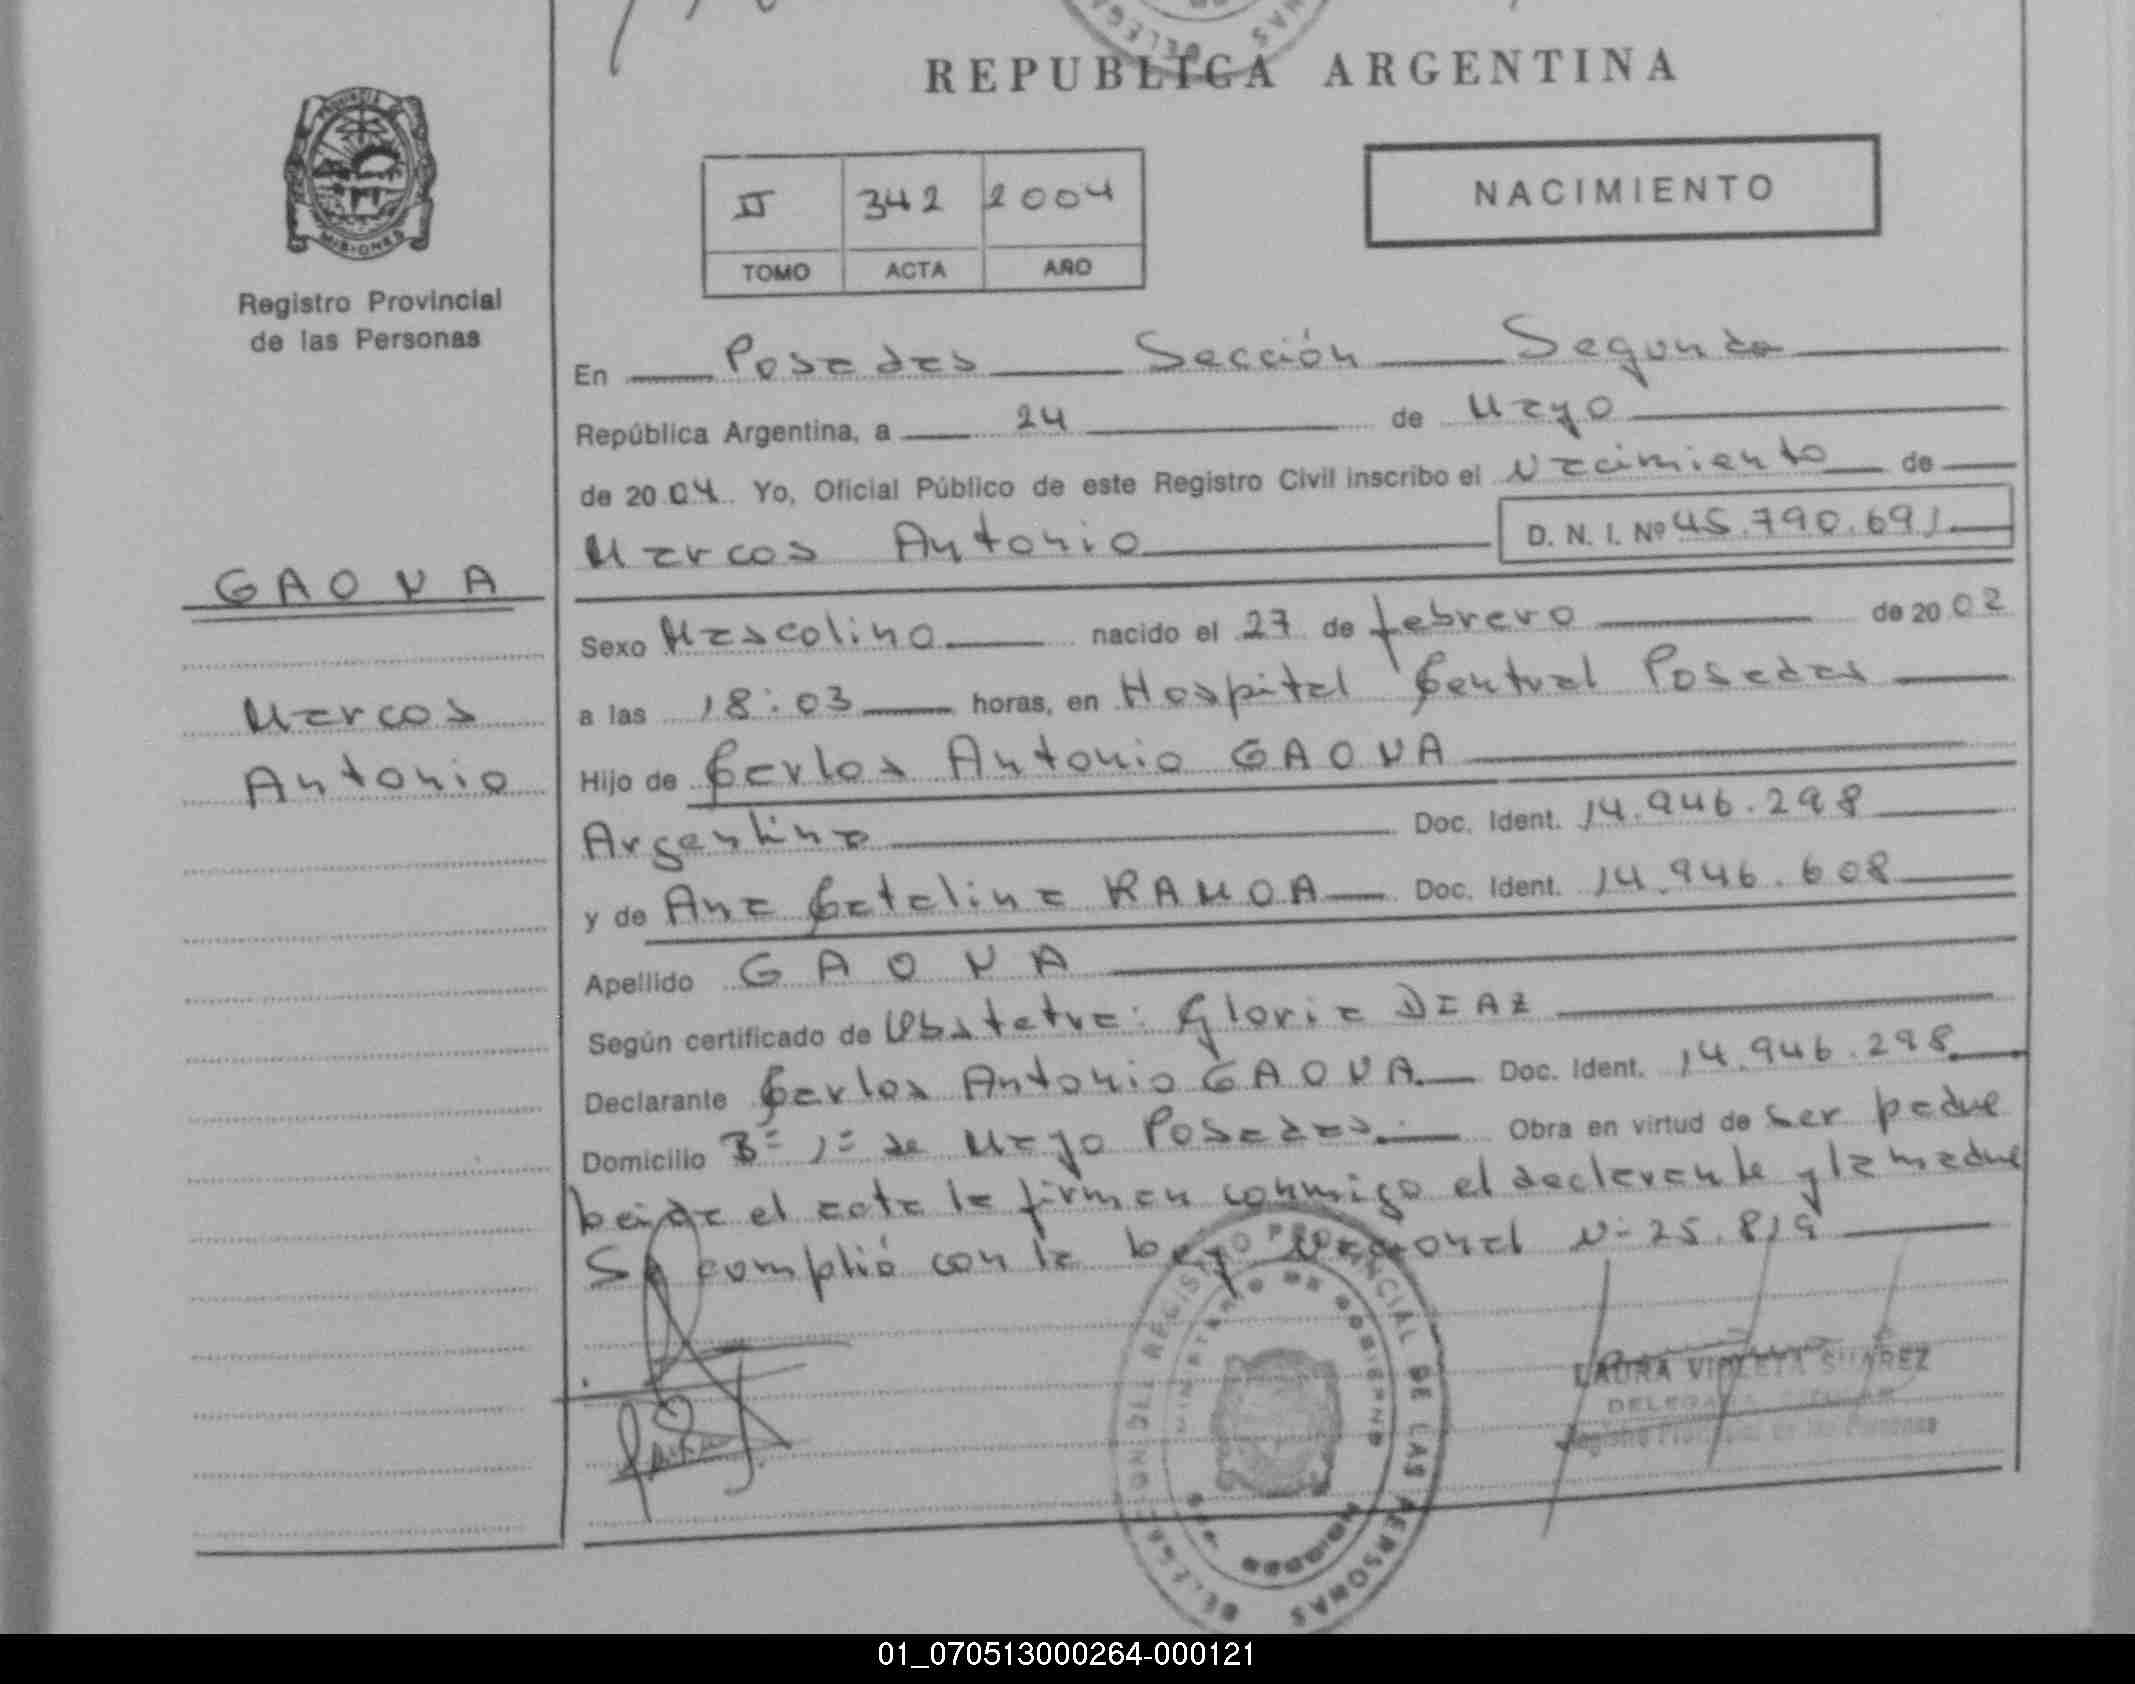 REPUBLICA ARGENTINA
PROVINCIA
MISIONES
Registro Provincial
de las Personas
II 342 2004
TOMO ACTA AÑO
NACIMIENTO
En Posadas Sección Segunda
República Argentina, a 24 de Mayo
de 2004. Yo, Oficial Público de este Registro Civil inscribo el Nacimiento de
Marcos Antonio D. N. I. Nº 45.790.691
GAONA
Marcos
Antonio
Sexo Masculino nacido el 27 de febrero de 2002
a las 18:03 horas, en Hospital Central Posadas
Hijo de Carlos Antonio GAONA
Argentino Doc. Ident. 14.946.298
y de Ana Catalina RAMOA Doc. Ident. 14.946.608
Apellido GAONA
Según certificado de Obstetra: Gloria DIAZ
Declarante Carlos Antonio GAONA Doc. Ident. 14.946.298
Domicilio Bº 1º de Mayo Posadas. Obra en virtud de ser padre
leída el acta la firman conmigo el declarante y la madre
Se cumplió con la Ley Nacional Nº 25.819
DELEGACION DEL REGISTRO PROVINCIAL DE LAS PERSONAS
MINISTERIO DE GOBIERNO
LAURA VIOLETA SUAREZ
DELEGADA TITULAR
Registro Provincial de las Personas
01_070513000264-000121